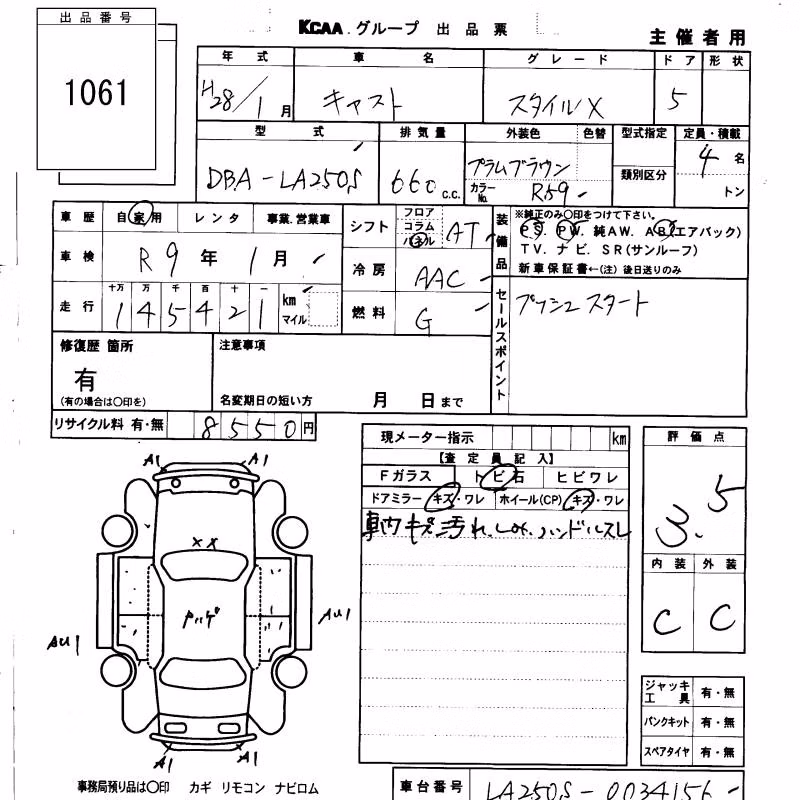 出品番号
1061
KCAA グループ 出品票
主催者用
年式 車名 グレード ドア 形状
H28/1月 キャスト スタイルX 5
型式 排気量 外装色 色替 型式指定 定員・積載
DBA-LA250S 660 C.C. プラムブラウン 4名
カラーNo. R59 類別区分 トン
車歴 自家用 レンタ 事業.営業車
シフト フロア コラム パネル AT
装備品 ※純正のみ〇印をつけて下さい。
PS. PW. 純AW. AB(エアバック)
TV. ナビ. SR(サンルーフ)
新車保証書←(注)後日送りのみ
車検 R9年1月
冷房 AAC
走行 十万 万 千 百 十 一
145421 km マイル
燃料 G
セールスポイント プッシュスタート
修復歴 箇所 注意事項
有
(有の場合は〇印を) 名変期日の短い方 月 日まで
リサイクル料 有・無 8550円
現メーター指示 km
評価点
【査定員記入】
Fガラス トビ石 ヒビワレ
ドアミラー キズ・ワレ ホイール(CP) キズ・ワレ
車内キズ汚れ.しみ.ハンドルスレ
3.5
内装 外装
C C
A1 A1
××
AU1
AU1
A1 A1
ジャッキ工具 有・無
パンクキット 有・無
スペアタイヤ 有・無
事務局預り品は〇印 カギ リモコン ナビロム
車台番号 LA250S-0034156